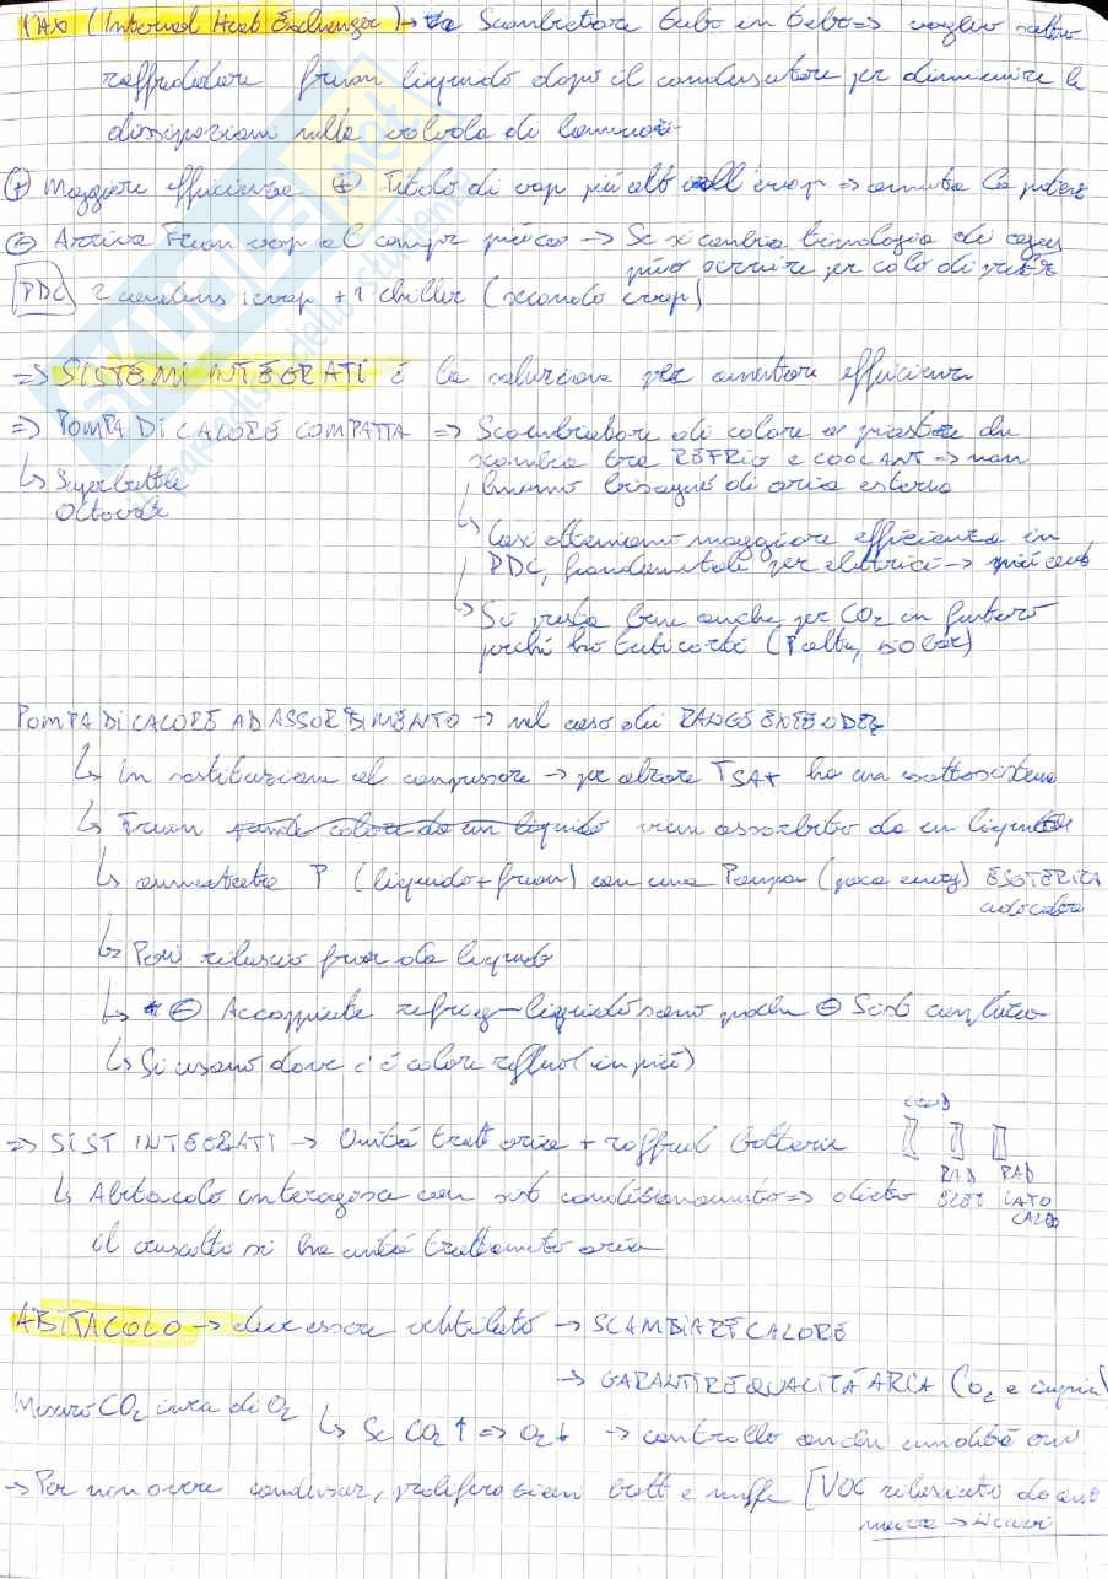 IHX (Internal Heat Exchanger) → Scambiatore tubo in tubo ⇒ voglio sotto
raffreddare freon liquido dopo il condensatore per diminuire le
dissipazioni nella valvola di laminaz.
⊕ Maggiore efficienza ⊕ Titolo di vap più alto all'evap ⇒ aumenta la potenz
⊖ Arriva Freon vap al compr più ca → Se si cambia tecnologia di
può servire per calo di
PDC 2 condens 1 evap + 1 chiller (secondo evap)
⇒ SISTEMI INTEGRATI è la soluzione per aumentare efficienza
⇒ POMPA DI CALORE COMPATTA ⇒ Scambiatore di calore a piastre che
scambia tra REFRIG e COOLANT ⇒ non
↳ Superbottle hanno bisogno di aria esterna
Octovalve
↳ Così otteniamo maggiore efficienza in
PDC, fondamentale per elettrici →
↳ Si presta bene anche per CO2 in futuro
perché ho tubi corti (P alte, 150 bar)
POMPA DI CALORE AD ASSORBIMENTO → nel caso di RANGE EXTENDER
↳ In sostituzione al compressore → per alzare TSAT ho un sottosistema
↳ Freon viene assorbito da un liquido
↳ aumentata P (liquido + freon) con una Pompa (poca energ) ESOTERICA
↳ Poi rilascio freon da liquido
↳ ⊖ Accoppiate refrig-liquido sono poche ⊖ Sist complesso
↳ Si usano dove c'è calore refluo (in più)
COND
⇒ SIST INTEGRATI → Unità tratt aria + raffred batteria
RAD RAD
↳ Abitacolo interagisce con sist condizionamento ⇒ dietro ELET LATO
CALD
il cruscotto si ha unità trattamento aria
ABITACOLO → deve essere ventilato → SCAMBIARE CALORE
→ GARANTIRE QUALITÀ ARIA (O2 e
Misuro CO2 invece di O2 ↳ Se CO2 ↑ ⇒ O2 ↓ → controllo anche umidità
→ Per non avere condensa, proliferazioni batt e muffe [VOC rilasciato da